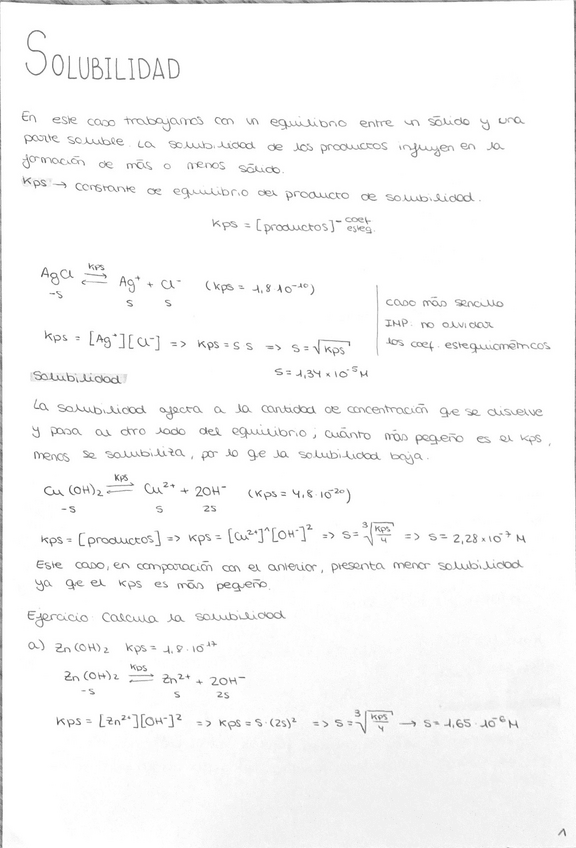 SOLUBILIDAD
En este caso trabajamos con un equilibrio entre un sólido y una
parte soluble. La solubilidad de los productos influyen en la
formación de más o menos sólido.
Kps → constante de equilibrio del producto de solubilidad.
Kps = [productos]^- coef. esteq.
AgCl ⇌ Ag⁺ + Cl⁻ (Kps = 1,8·10⁻¹⁰)
Kps
-S S S
caso más sencillo
IMP. no olvidar
los coef. estequiométricos
Kps = [Ag⁺][Cl⁻] => Kps = S·S => S = √Kps
S = 1,34 × 10⁻⁵ M
Solubilidad
La solubilidad afecta a la cantidad de concentración qe se disuelve
y pasa al otro lado del equilibrio; cuánto más pequeño es el Kps,
menos se solubiliza, por lo qe la solubilidad baja.
Cu(OH)₂ ⇌ Cu²⁺ + 2OH⁻ (Kps = 4,8·10⁻²⁰)
Kps
-S S 2S
Kps = [productos] => Kps = [Cu²⁺]^[OH⁻]² => S = ∛(Kps/4) => S = 2,28 × 10⁻⁷ M
Este caso, en comparación con el anterior, presenta menor solubilidad
ya qe el Kps es más pequeño.
Ejercicio: Calcula la solubilidad
a) Zn(OH)₂ Kps = 1,8·10⁻¹⁷
Zn(OH)₂ ⇌ Zn²⁺ + 2OH⁻
Kps
-S S 2S
Kps = [Zn²⁺][OH⁻]² => Kps = S·(2S)² => S = ∛(Kps/4) → S = 1,65·10⁻⁶ M
1